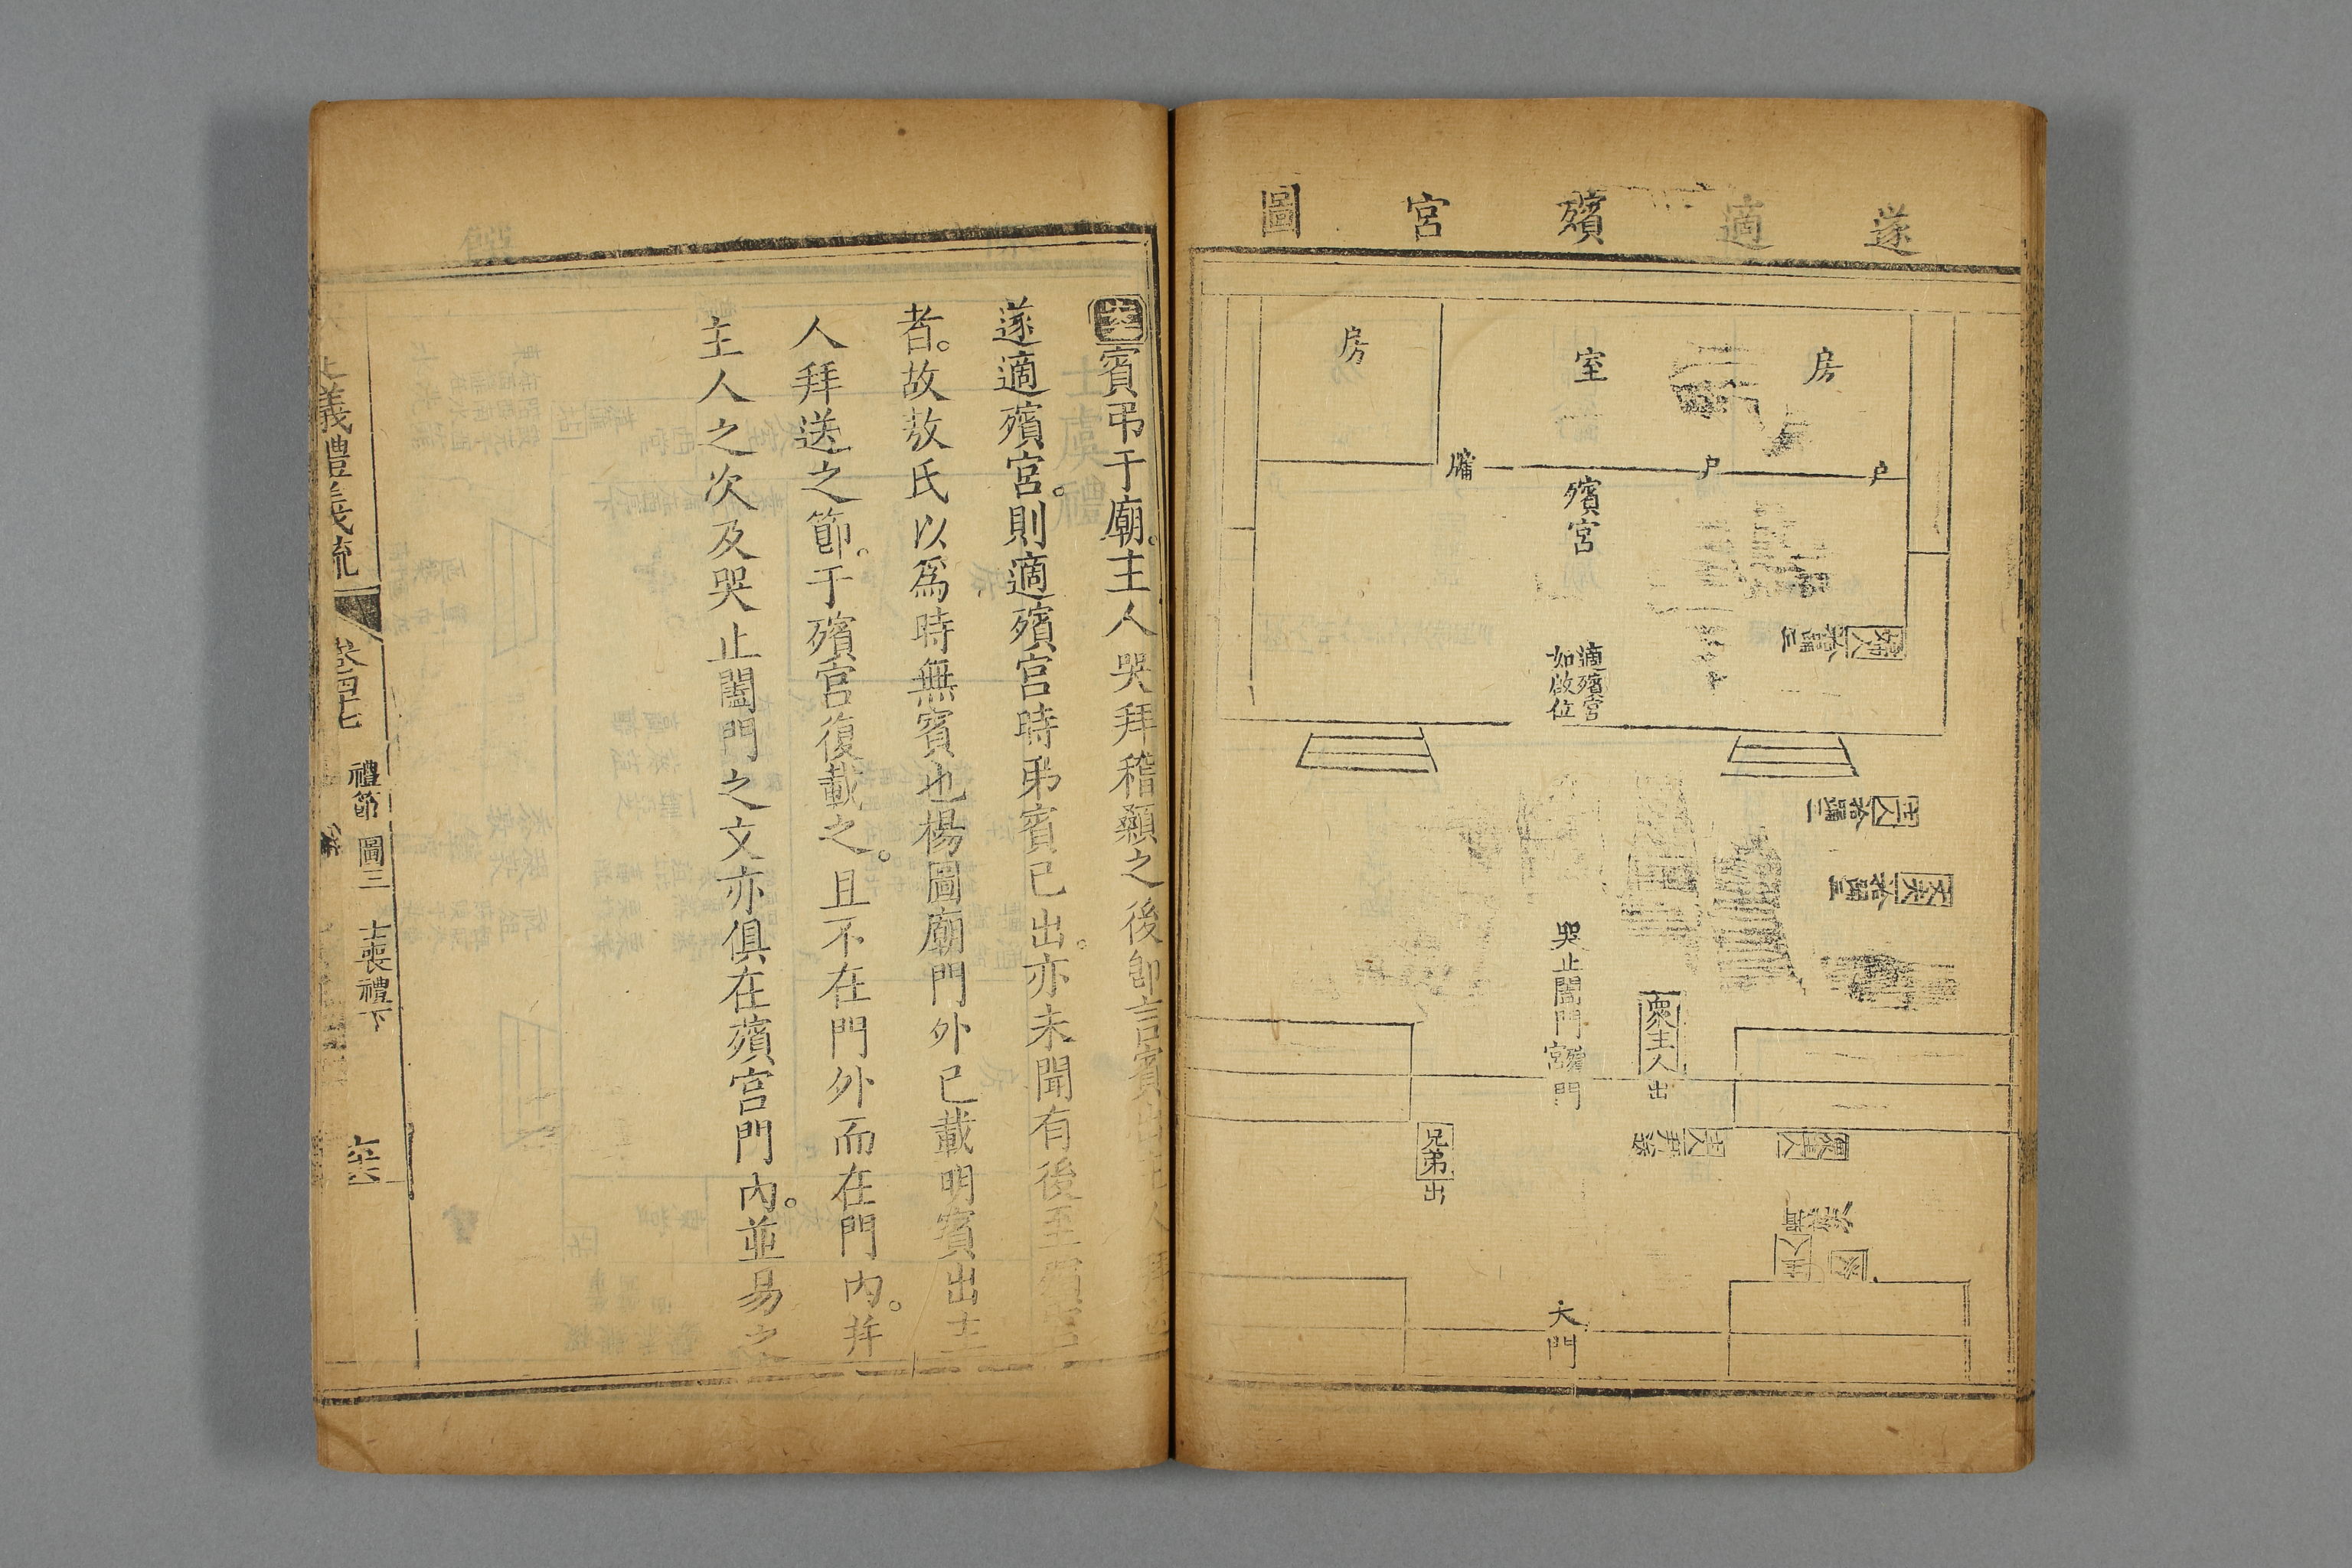 遂適殯宮圖
房
室
房
戶
戶
牖
殯宮
適殯宮
如啟位
婦人
主人
丈夫
哭止闔門
殯宮門
衆主人出
兄弟出
主人拜送
衆主人
大門
案賓弔于廟。主人哭拜稽顙之後卽言賓出主人拜送
遂適殯宮。則適殯宮時弔賓已出。亦未聞有後至殯宮
者。故敖氏以爲時無賓也楊圖廟門外已載明賓出主
人拜送之節。于殯宮復載之。且不在門外而在門內。并
主人之次及哭止闔門之文亦俱在殯宮門內。並易之
儀禮義疏
卷四十七
禮節圖三
士喪禮下